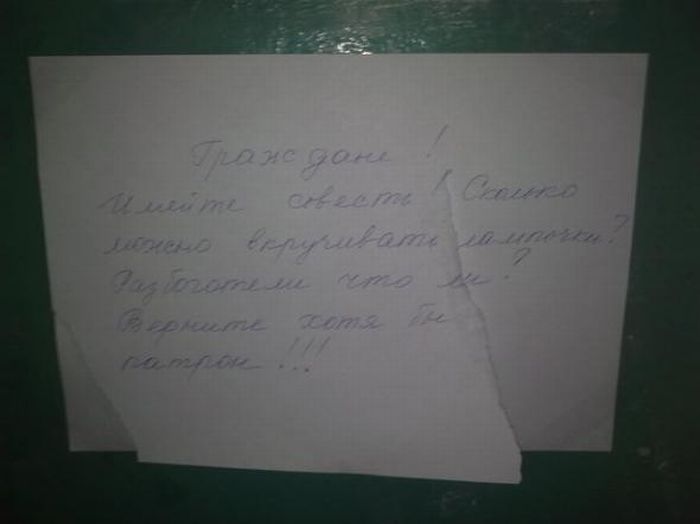 Граждане!
Имейте совесть! Сколько
можно вкручивать лампочки?
Разбогатели что ли?
Верните хотя бы
патрон!!!